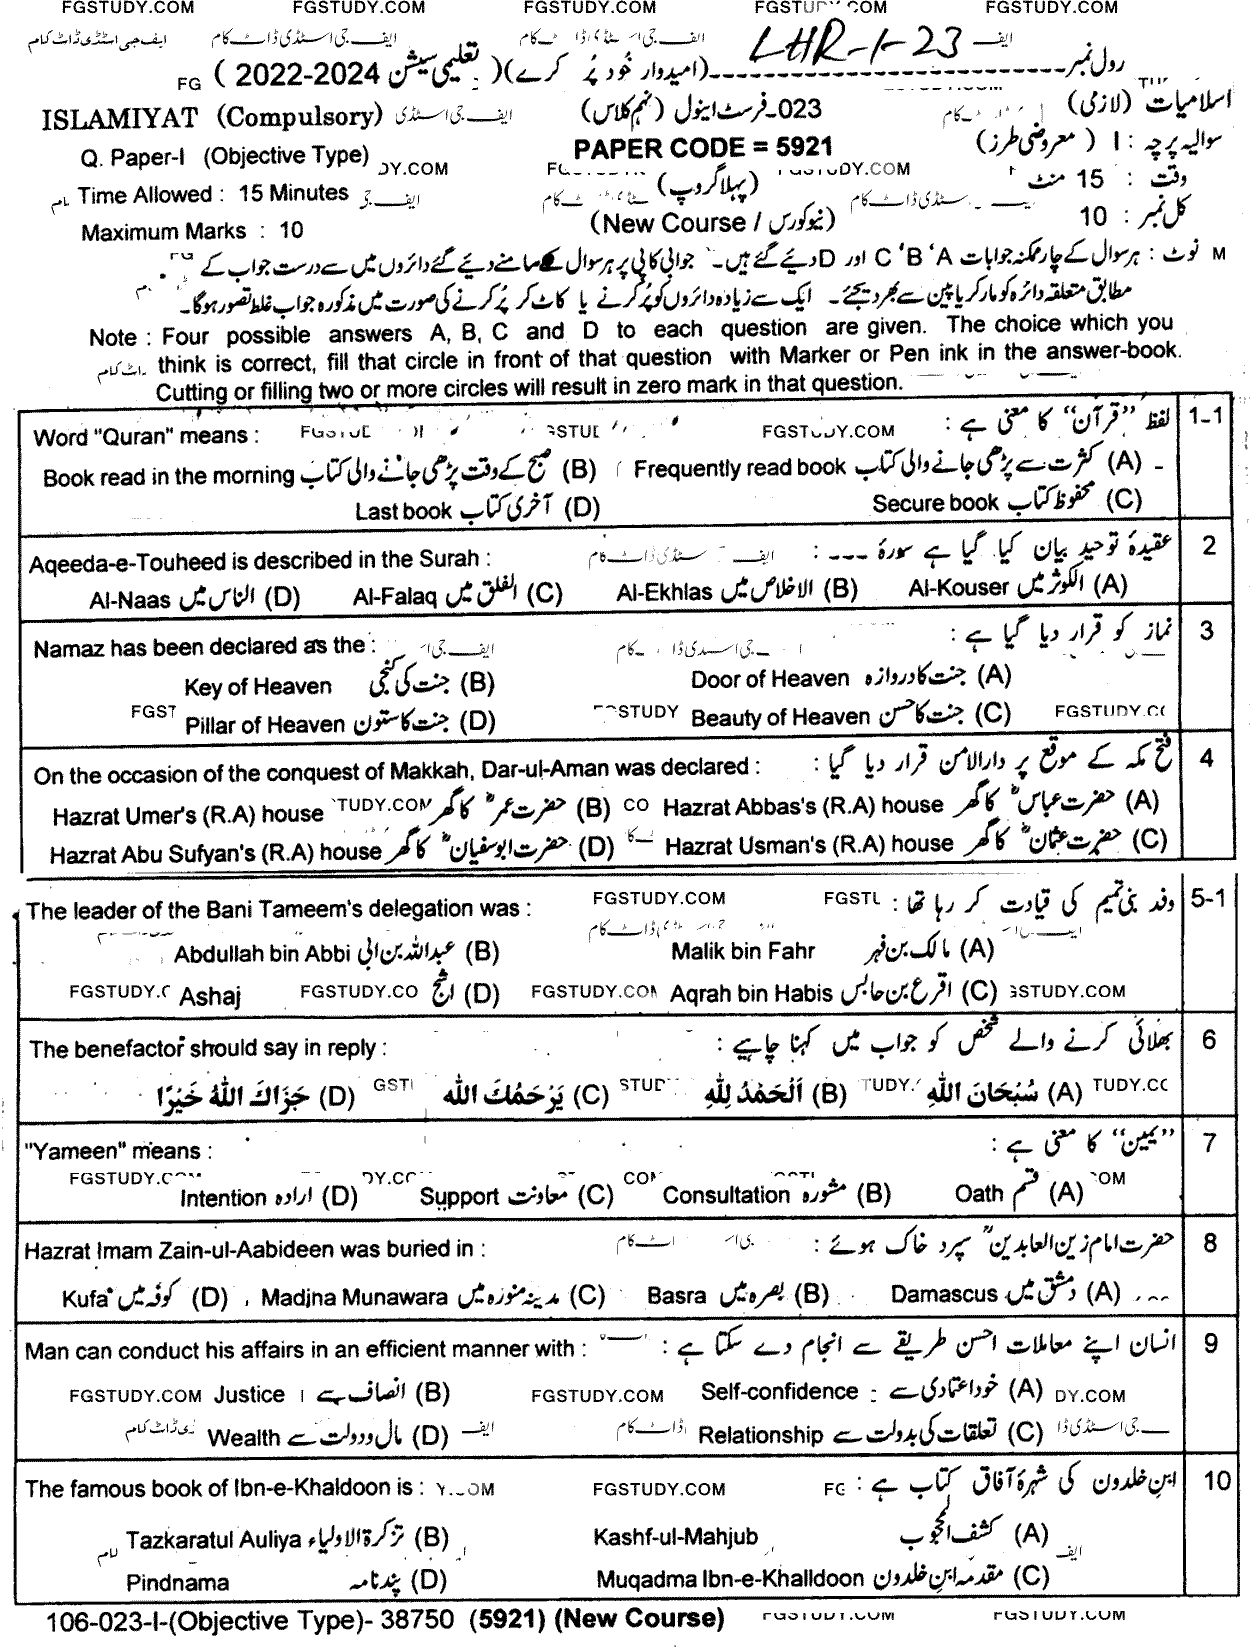 FGSTUDY.COM FGSTUDY.COM FGSTUDY.COM FGSTUDY.COM
ایف جی اسٹڈی ڈاٹ کام ایف جی اسٹڈی ڈاٹ کام
LHR-1-23
رول نمبر ---------- (امیدوار خود پُر کرے) (تعلیمی سیشن 2022-2024)
اسلامیات (لازمی) 023-فرسٹ اینول (نہم کلاس) ISLAMIYAT (Compulsory)
سوالیہ پرچہ : I (معروضی طرز) PAPER CODE = 5921 Q. Paper-I (Objective Type)
وقت : 15 منٹ (پہلا گروپ) Time Allowed : 15 Minutes
کل نمبر : 10 (نیو کورس / New Course) Maximum Marks : 10
نوٹ : ہر سوال کے چار ممکنہ جوابات A ‘ B ‘ C اور D دیئے گئے ہیں۔ جوابی کاپی پر ہر سوال کے سامنے دیئے گئے دائروں میں سے درست جواب کے
مطابق متعلقہ دائرہ کو مارکر یا پین سے بھر دیجئے۔ ایک سے زیادہ دائروں کو پُر کرنے یا کاٹ کر پُر کرنے کی صورت میں مذکورہ جواب غلط تصور ہوگا۔
Note : Four possible answers A, B, C and D to each question are given. The choice which you
think is correct, fill that circle in front of that question with Marker or Pen ink in the answer-book.
Cutting or filling two or more circles will result in zero mark in that question.
1-1 لفظ ’’قرآن‘‘ کا معنی ہے : Word "Quran" means :
(A) کثرت سے پڑھی جانے والی کتاب Frequently read book (B) صبح کے وقت پڑھی جانے والی کتاب Book read in the morning
(C) محفوظ کتاب Secure book (D) آخری کتاب Last book
2 عقیدۂ توحید بیان کیا گیا ہے سورۂ --- : Aqeeda-e-Touheed is described in the Surah :
(A) الکوثر میں Al-Kouser (B) الاخلاص میں Al-Ekhlas (C) الفلق میں Al-Falaq (D) الناس میں Al-Naas
3 نماز کو قرار دیا گیا ہے : Namaz has been declared as the :
(A) جنت کا دروازہ Door of Heaven (B) جنت کی کنجی Key of Heaven
(C) جنت کا حسن Beauty of Heaven (D) جنت کا ستون Pillar of Heaven
4 فتح مکہ کے موقع پر دارالامن قرار دیا گیا : On the occasion of the conquest of Makkah, Dar-ul-Aman was declared :
(A) حضرت عباسؓ کا گھر Hazrat Abbas's (R.A) house (B) حضرت عمرؓ کا گھر Hazrat Umer's (R.A) house
(C) حضرت عثمانؓ کا گھر Hazrat Usman's (R.A) house (D) حضرت ابوسفیانؓ کا گھر Hazrat Abu Sufyan's (R.A) house
5-1 وفد بنی تمیم کی قیادت کر رہا تھا : The leader of the Bani Tameem's delegation was :
(A) مالک بن فہر Malik bin Fahr (B) عبداللہ بن ابی Abdullah bin Abbi
(C) اقرع بن حابس Aqrah bin Habis (D) اشج Ashaj
6 بھلائی کرنے والے شخص کو جواب میں کہنا چاہیے : The benefactor should say in reply :
(A) سُبْحَانَ اللّٰهِ (B) اَلْحَمْدُ لِلّٰهِ (C) يَرْحَمُكَ اللّٰه (D) جَزَاكَ اللّٰهُ خَيْرًا
7 ’’یمین‘‘ کا معنی ہے : "Yameen" means :
(A) قسم Oath (B) مشورہ Consultation (C) معاونت Support (D) ارادہ Intention
8 حضرت امام زین العابدینؒ سپرد خاک ہوئے : Hazrat Imam Zain-ul-Aabideen was buried in :
(A) دمشق میں Damascus (B) بصرہ میں Basra (C) مدینہ منورہ میں Madina Munawara (D) کوفہ میں Kufa
9 انسان اپنے معاملات احسن طریقے سے انجام دے سکتا ہے : Man can conduct his affairs in an efficient manner with :
(A) خود اعتمادی سے Self-confidence (B) انصاف سے Justice
(C) تعلقات کی بدولت سے Relationship (D) مال و دولت سے Wealth
10 ابنِ خلدون کی شہرۂ آفاق کتاب ہے : The famous book of Ibn-e-Khaldoon is :
(A) کشف المحجوب Kashf-ul-Mahjub (B) تزکرۃ الاولیاء Tazkaratul Auliya
(C) مقدمہ ابنِ خلدون Muqadma Ibn-e-Khalldoon (D) پندنامہ Pindnama
106-023-I-(Objective Type)- 38750 (5921) (New Course)